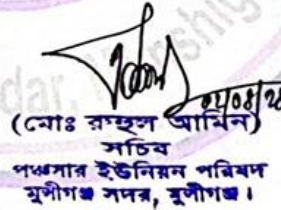 ০১/০৪/২
(মোঃ রুহুল আমিন)
সচিব
পঞ্চসার ইউনিয়ন পরিষদ
মুন্সীগঞ্জ সদর, মুন্সীগঞ্জ।